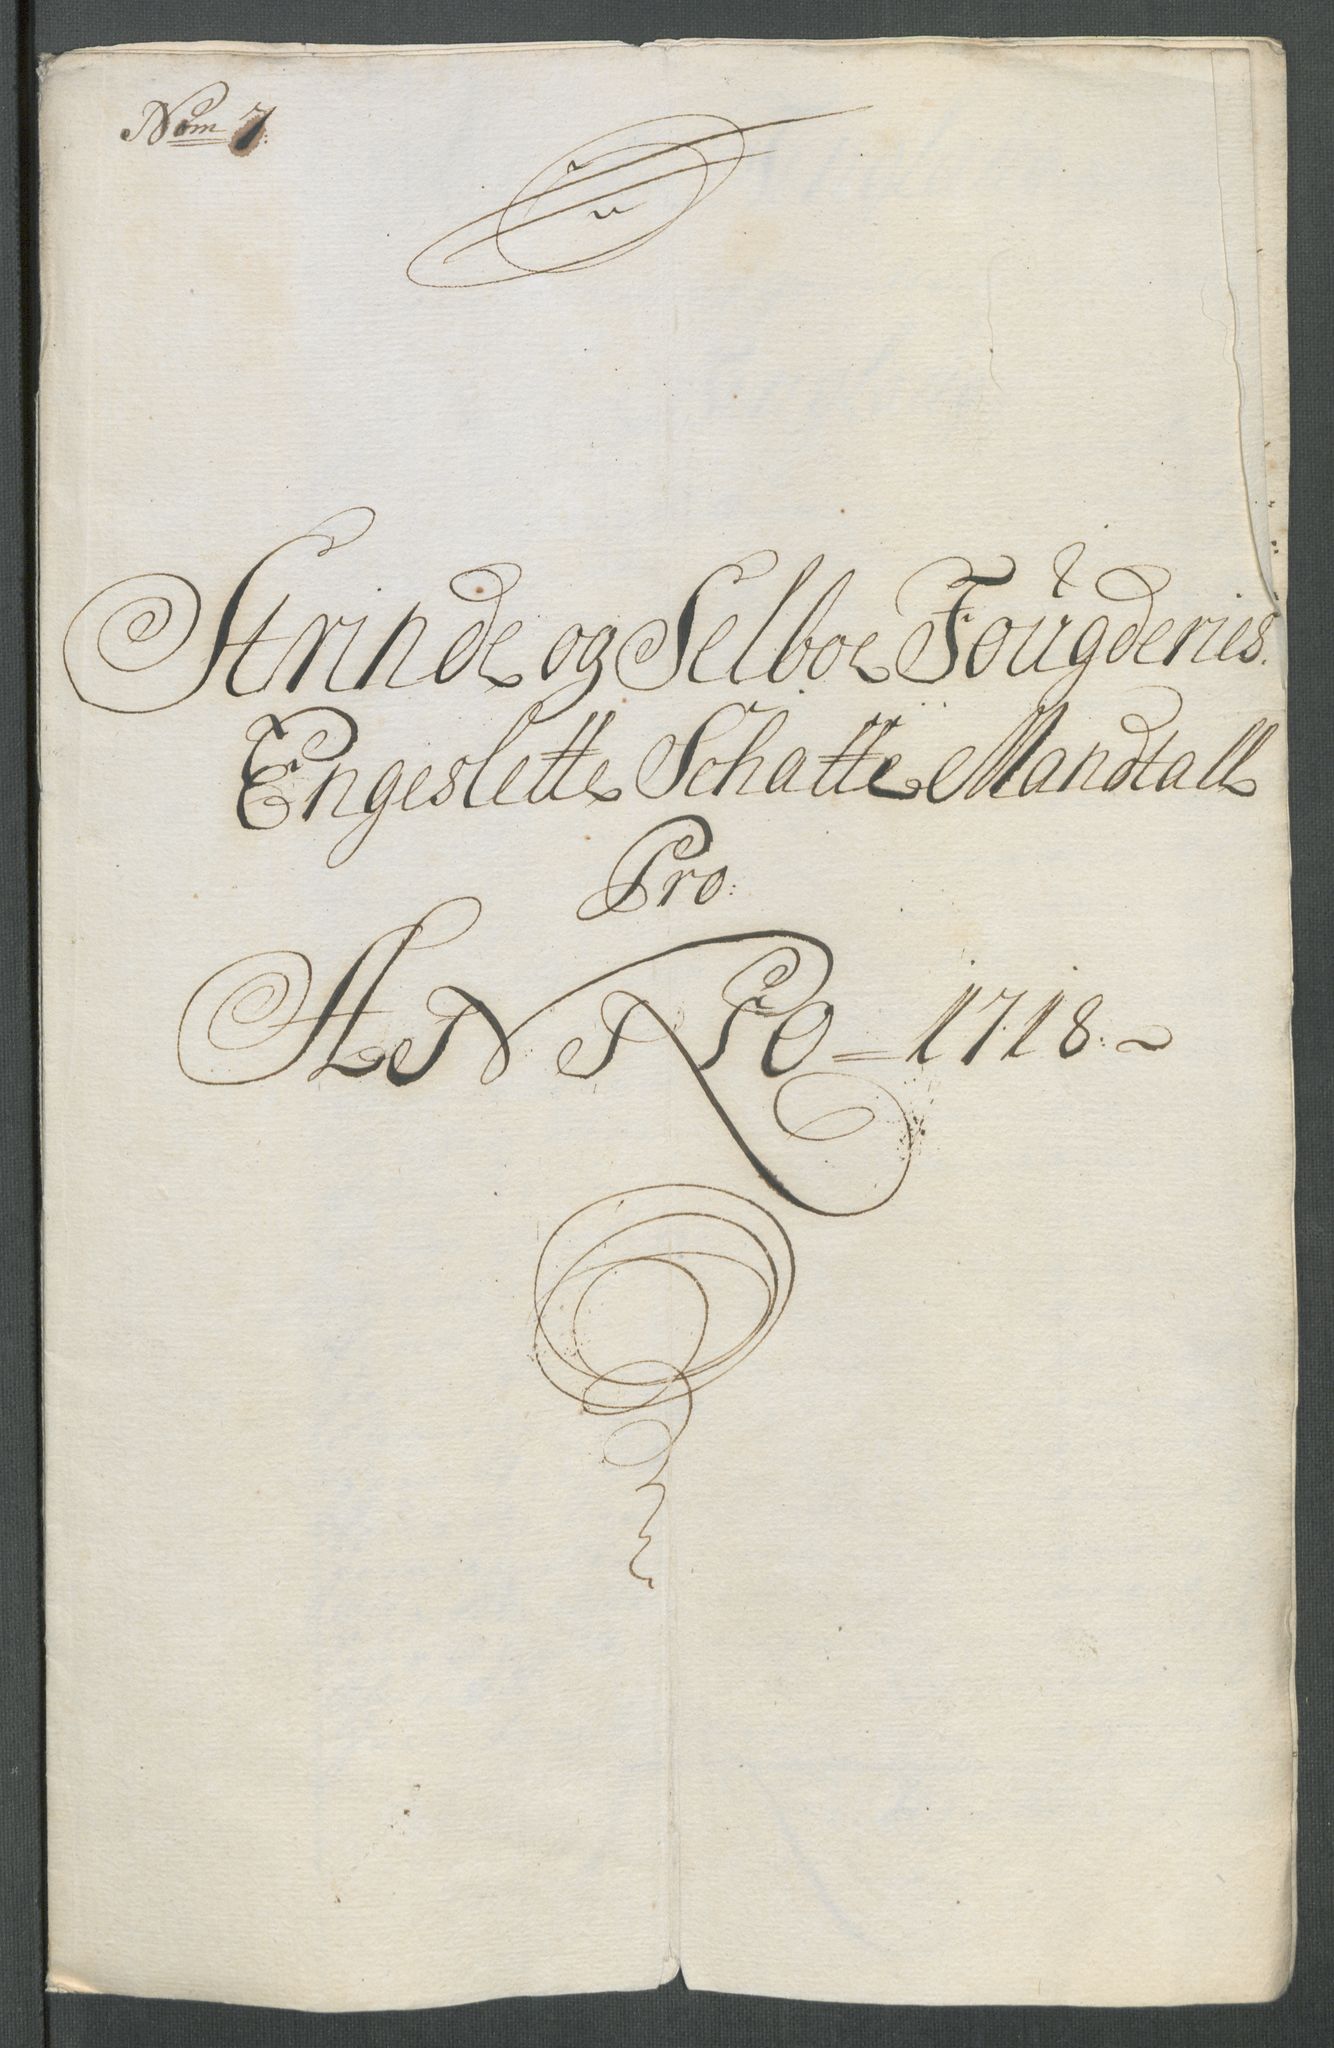 Nom 7.
Strinde og Selboe Foŭgderies.
Engeslette Schatte Mandtall
Pro:
ANNO = 1718.